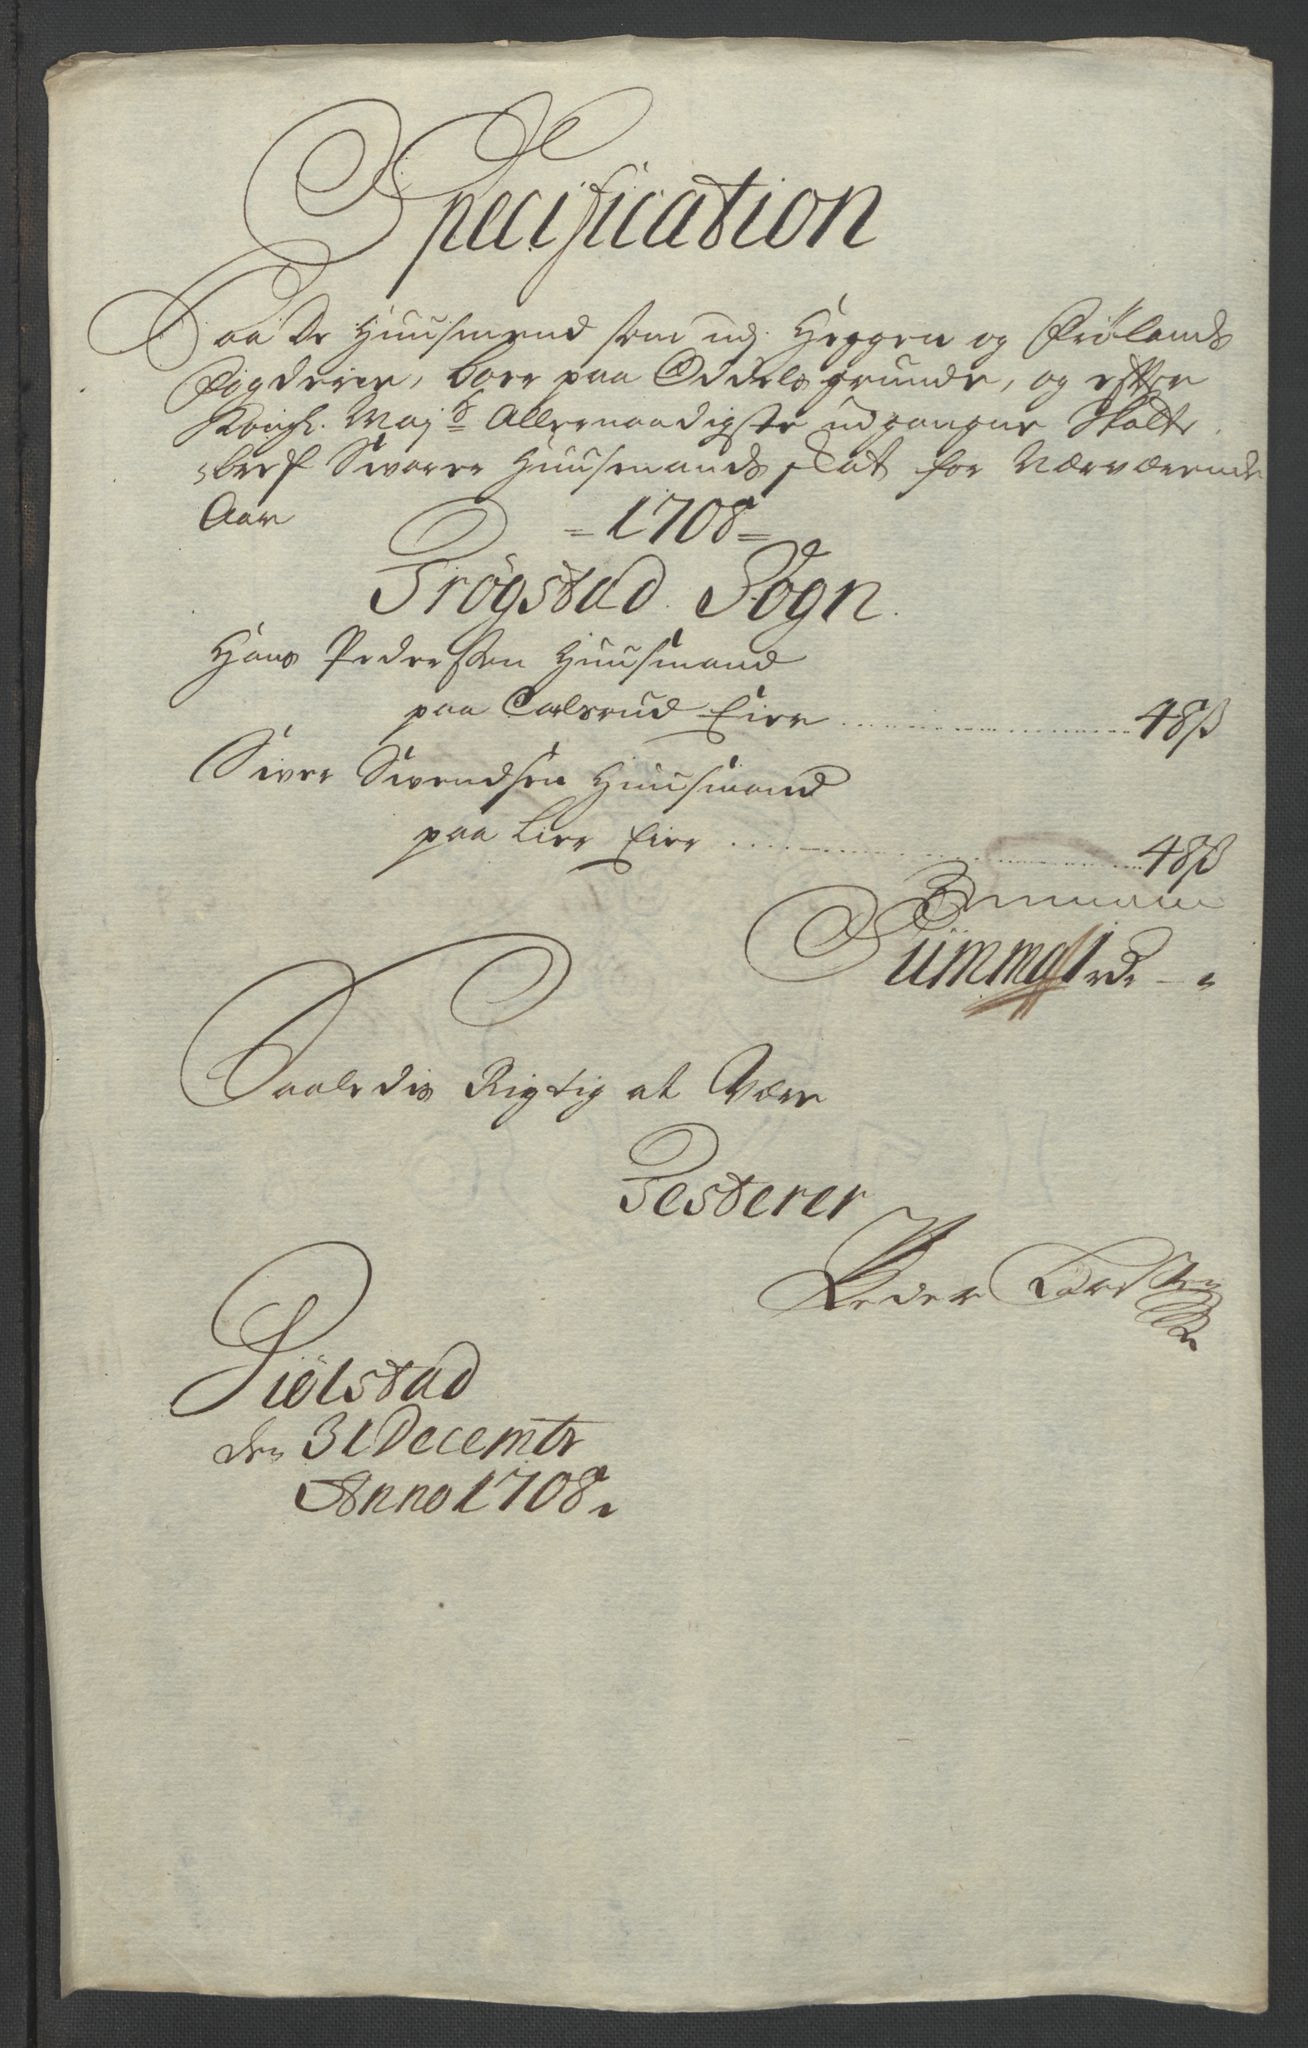 Specification
Paa De Huusmend som udj Heggen og Frölands
Fogderie, boer paa Oddels grunde, og efter
Kongl. Maj.ts Allernaadigste udgangne Skatte
bref Svarer Huusmands skat for Nærværende
Aar
= 1708 =
Trögstad Sogn.
Hans Pederssen Huusmand
paa Carlsrud Eier ......... 48 ß
Siver Svendsen Huusmand
paa Lier Eier ......... 48 ß
Summa 1 rdr - "
Saaledis Rigtig at Være
Testerer
Peder
Siölstad
den 31 Decembr
Anno 1708